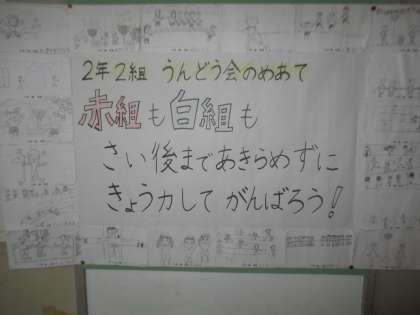 2年2組 うんどう会のめあて
赤組も白組も
さい後まであきらめずに
きょう力して がんばろう!